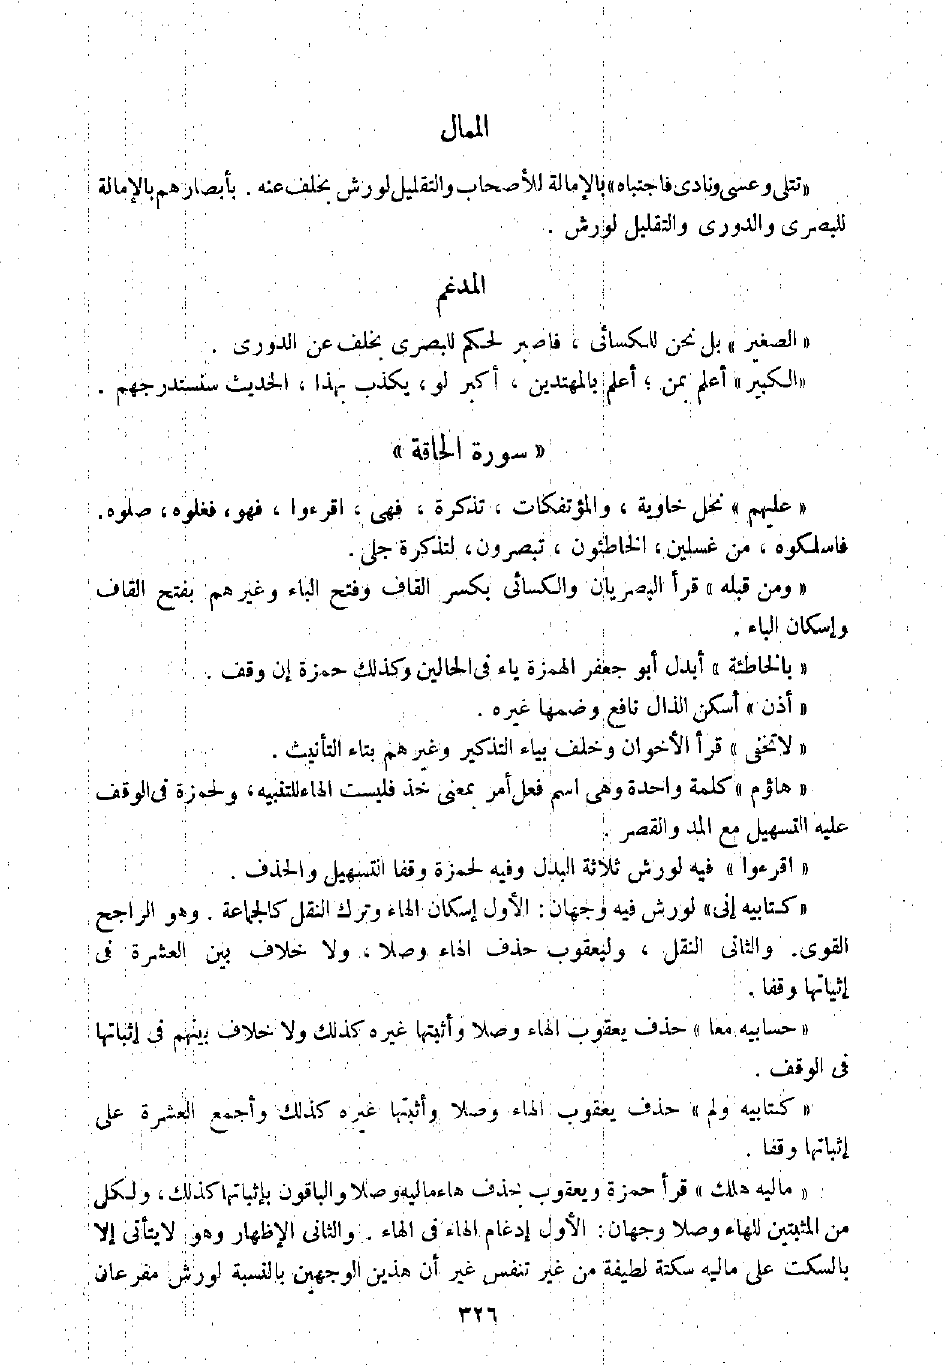 الممال
«تتلى وعسى ونادى فاجتباه» بالإمالة للأصحاب والتقليل لورش بخلف عنه . بأبصارهم بالإمالة
للبصرى والدورى والتقليل لورش .
المدغم
« الصغير » بل نحن للكسائى ، فاصبر لحكم للبصرى بخلف عن الدورى .
«الكبير» أعلم بمن ؛ أعلم بالمهتدين ، أكبر لو ، يكذب بهذا ، الحديث سنستدرجهم .
« سورة الحاقة »
« عليهم » نخل خاوية ، والمؤتفكات ، تذكرة ، فهى ، اقرءوا ، فهو، فغلوه ، صلوه.
فاسلكوه ، من غسلين ، الخاطئون ، تبصرون ، لتذكرة جلى .
« ومن قبله » قرأ البصريان والكسائى بكسر القاف وفتح الباء وغيرهم بفتح القاف
وإسكان الباء .
« بالخاطئة » أبدل أبو جعفر الهمزة ياء فى الحالين وكذلك حمزة إن وقف .
« أذن » أسكن الذال نافع وضمها غيره .
« لاتخفى » قرأ الأخوان وخلف بياء التذكير وغيرهم بتاء التأنيث .
« هاؤم » كلمة واحدة وهى اسم فعل أمر بمعنى خذ فليست الهاء للتنبيه ، ولحمزة فى الوقف
عليه التسهيل مع المد والقصر .
« اقرءوا » فيه لورش ثلاثة البدل وفيه لحمزة وقفا التسهيل والحذف .
«كتابيه إنى» لورش فيه وجهان : الأول إسكان الهاء وترك النقل كالجماعة . وهو الراجح
القوى. والثانى النقل ، وليعقوب حذف الهاء وصلا ، ولا خلاف بين العشرة فى
إثباتها وقفا .
« حسابيه معا » حذف يعقوب الهاء وصلا وأثبتها غيره كذلك ولا خلاف بينهم فى إثباتها
فى الوقف .
« كتابيه ولم » حذف يعقوب الهاء وصلا وأثبتها غيره كذلك وأجمع العشرة على
إثباتها وقفا .
« ماليه هلك » قرأ حمزة ويعقوب بحذف هاء ماليه وصلا والباقون بإثباتها كذلك ، ولكل
من المثبتين للهاء وصلا وجهان : الأول إدغام الهاء فى الهاء . والثانى الإظهار وهو لايتأتى إلا
بالسكت على ماليه سكتة لطيفة من غير تنفس غير أن هذين الوجهين بالنسبة لورش مفرعان
٣٢٦